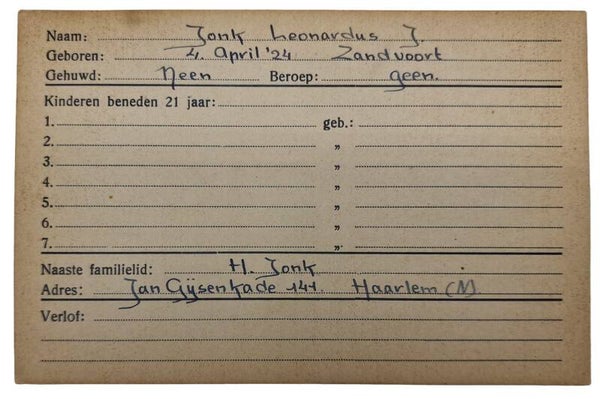 Naam: Jonk Leonardus J.
Geboren: 4. April '24 Zandvoort
Gehuwd: Neen Beroep: geen.
Kinderen beneden 21 jaar:
1. geb.:
2. „
3. „
4. „
5. „
6. „
7. „
Naaste familielid: H. Jonk
Adres: Jan Gijsenkade 141 Haarlem (N)
Verlof: